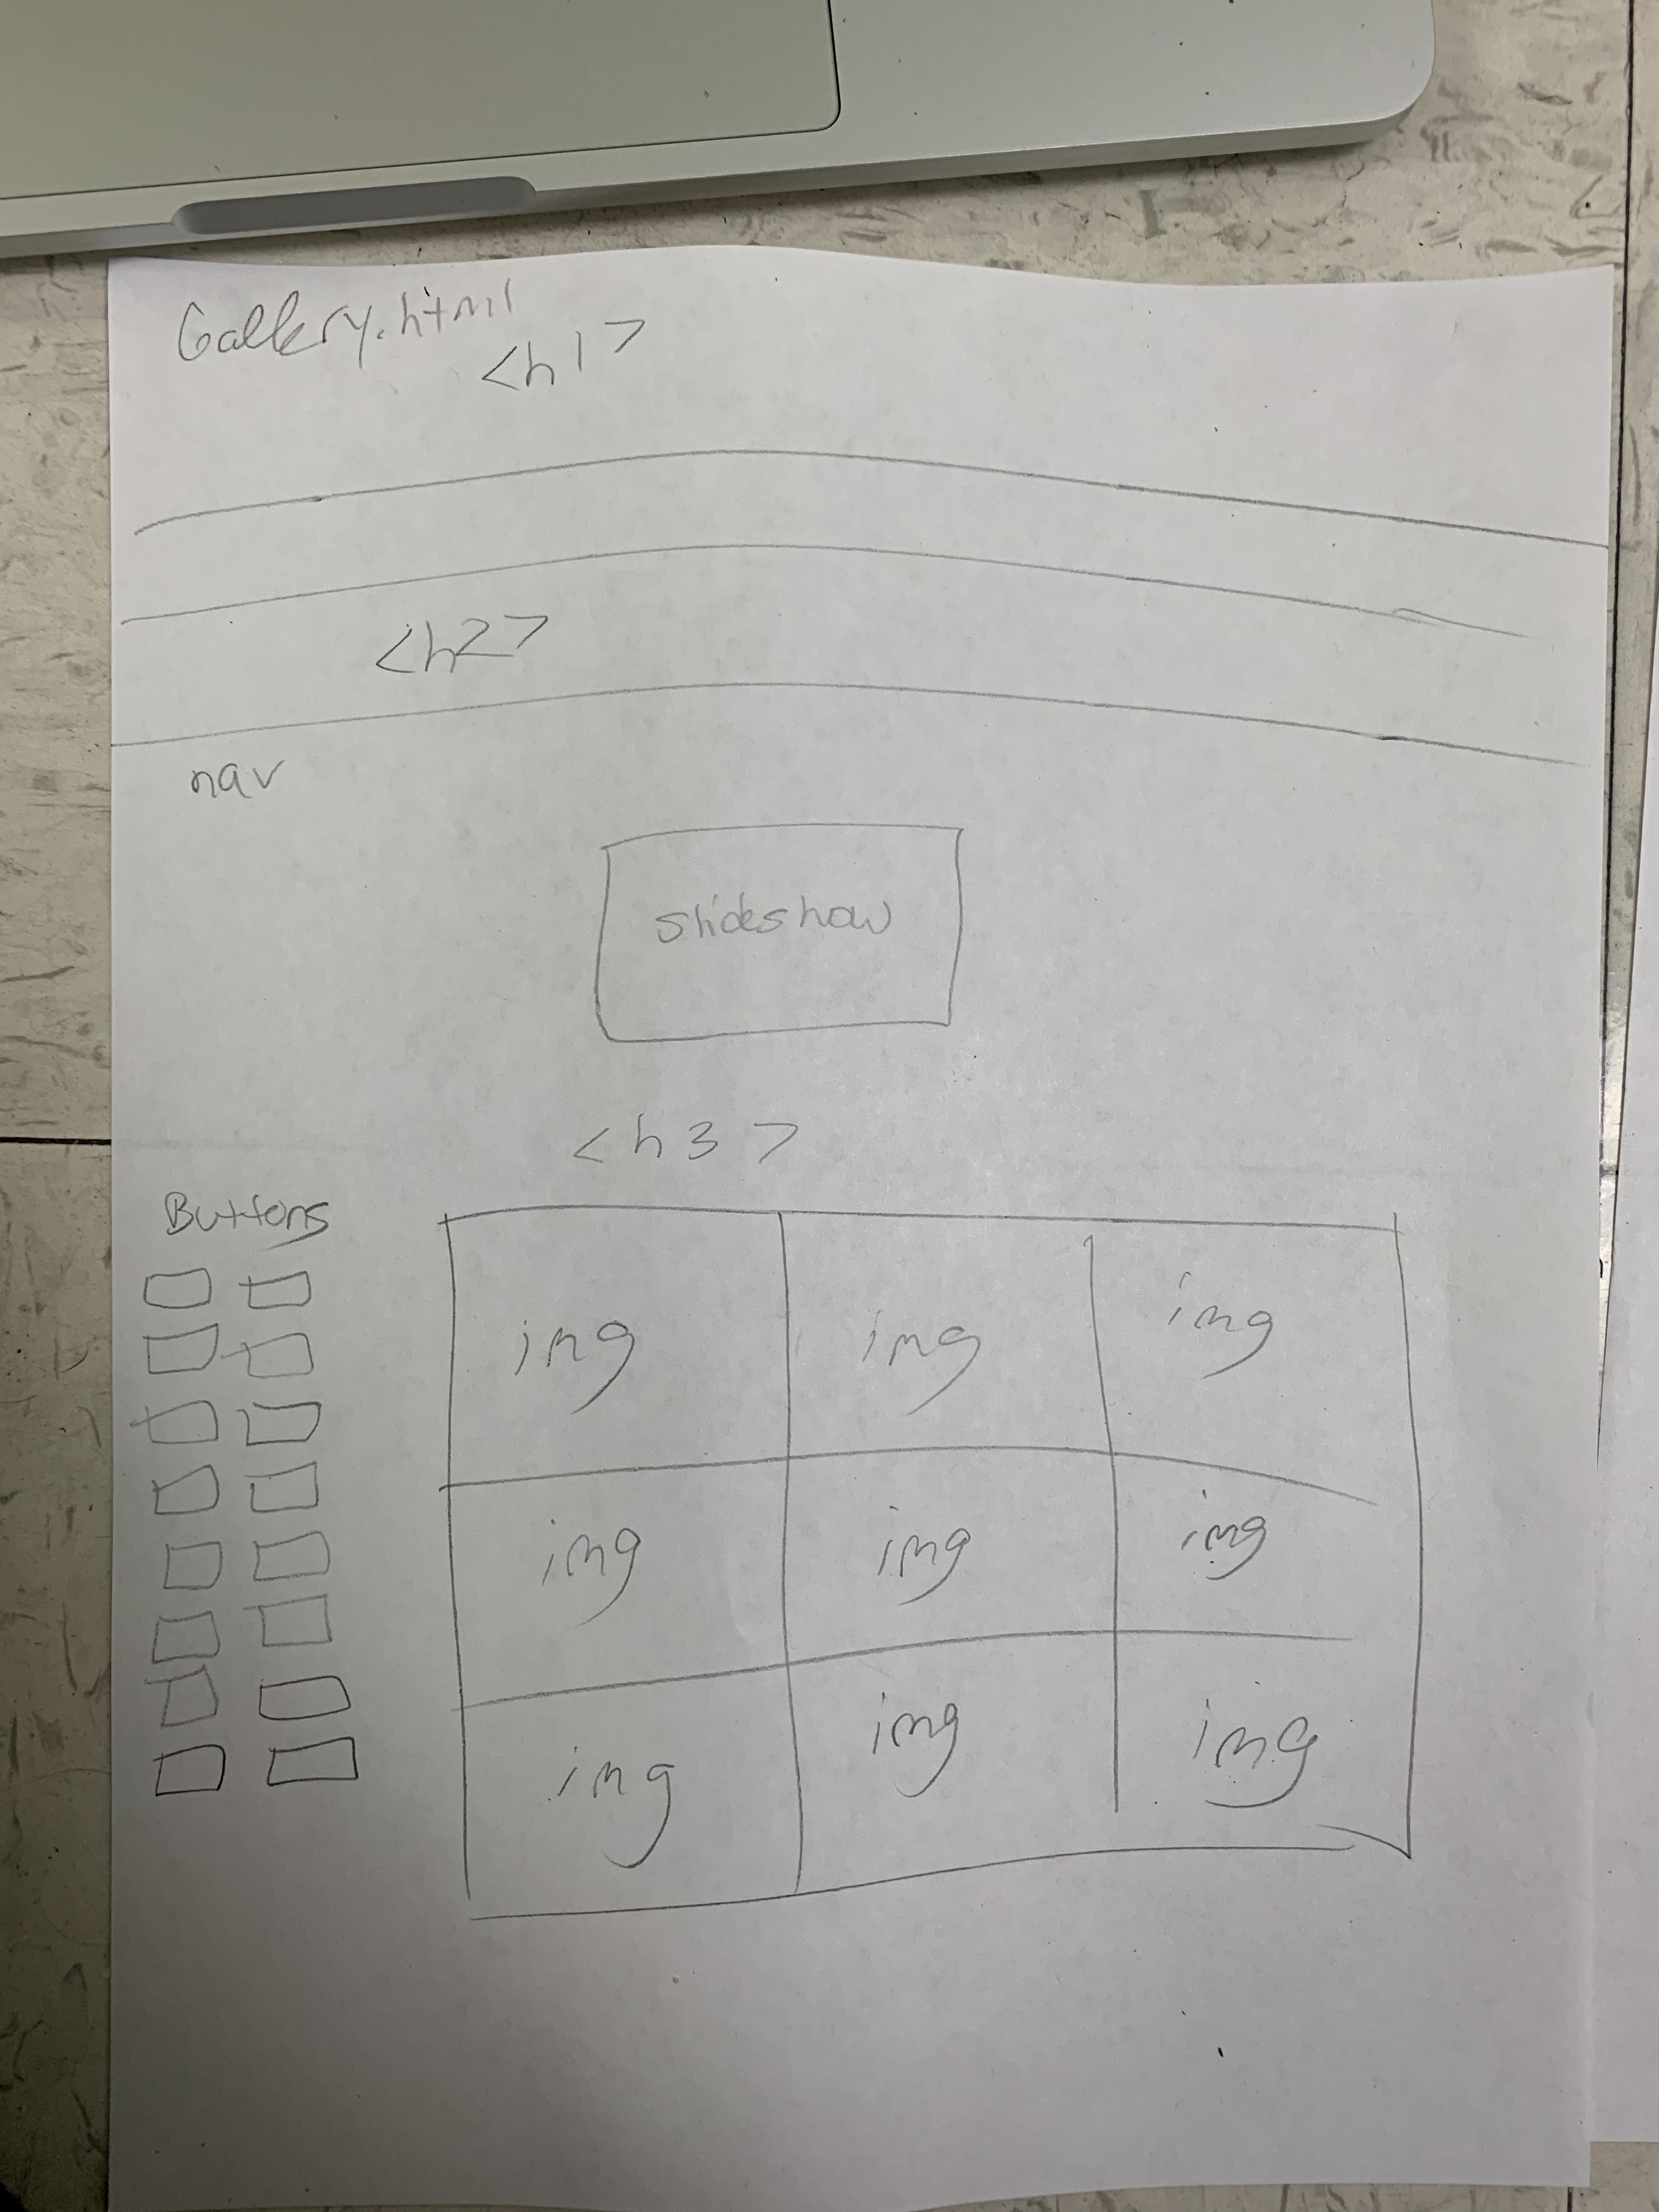 Gallery.html
<h1>
<h2>
nav
slideshow
<h3>
Buttons
img img img
img img img
img img img